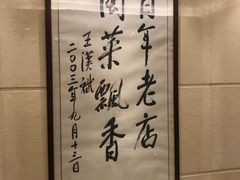 百年老店
閩菜飄香
王漢斌
二〇〇三年九月十三日